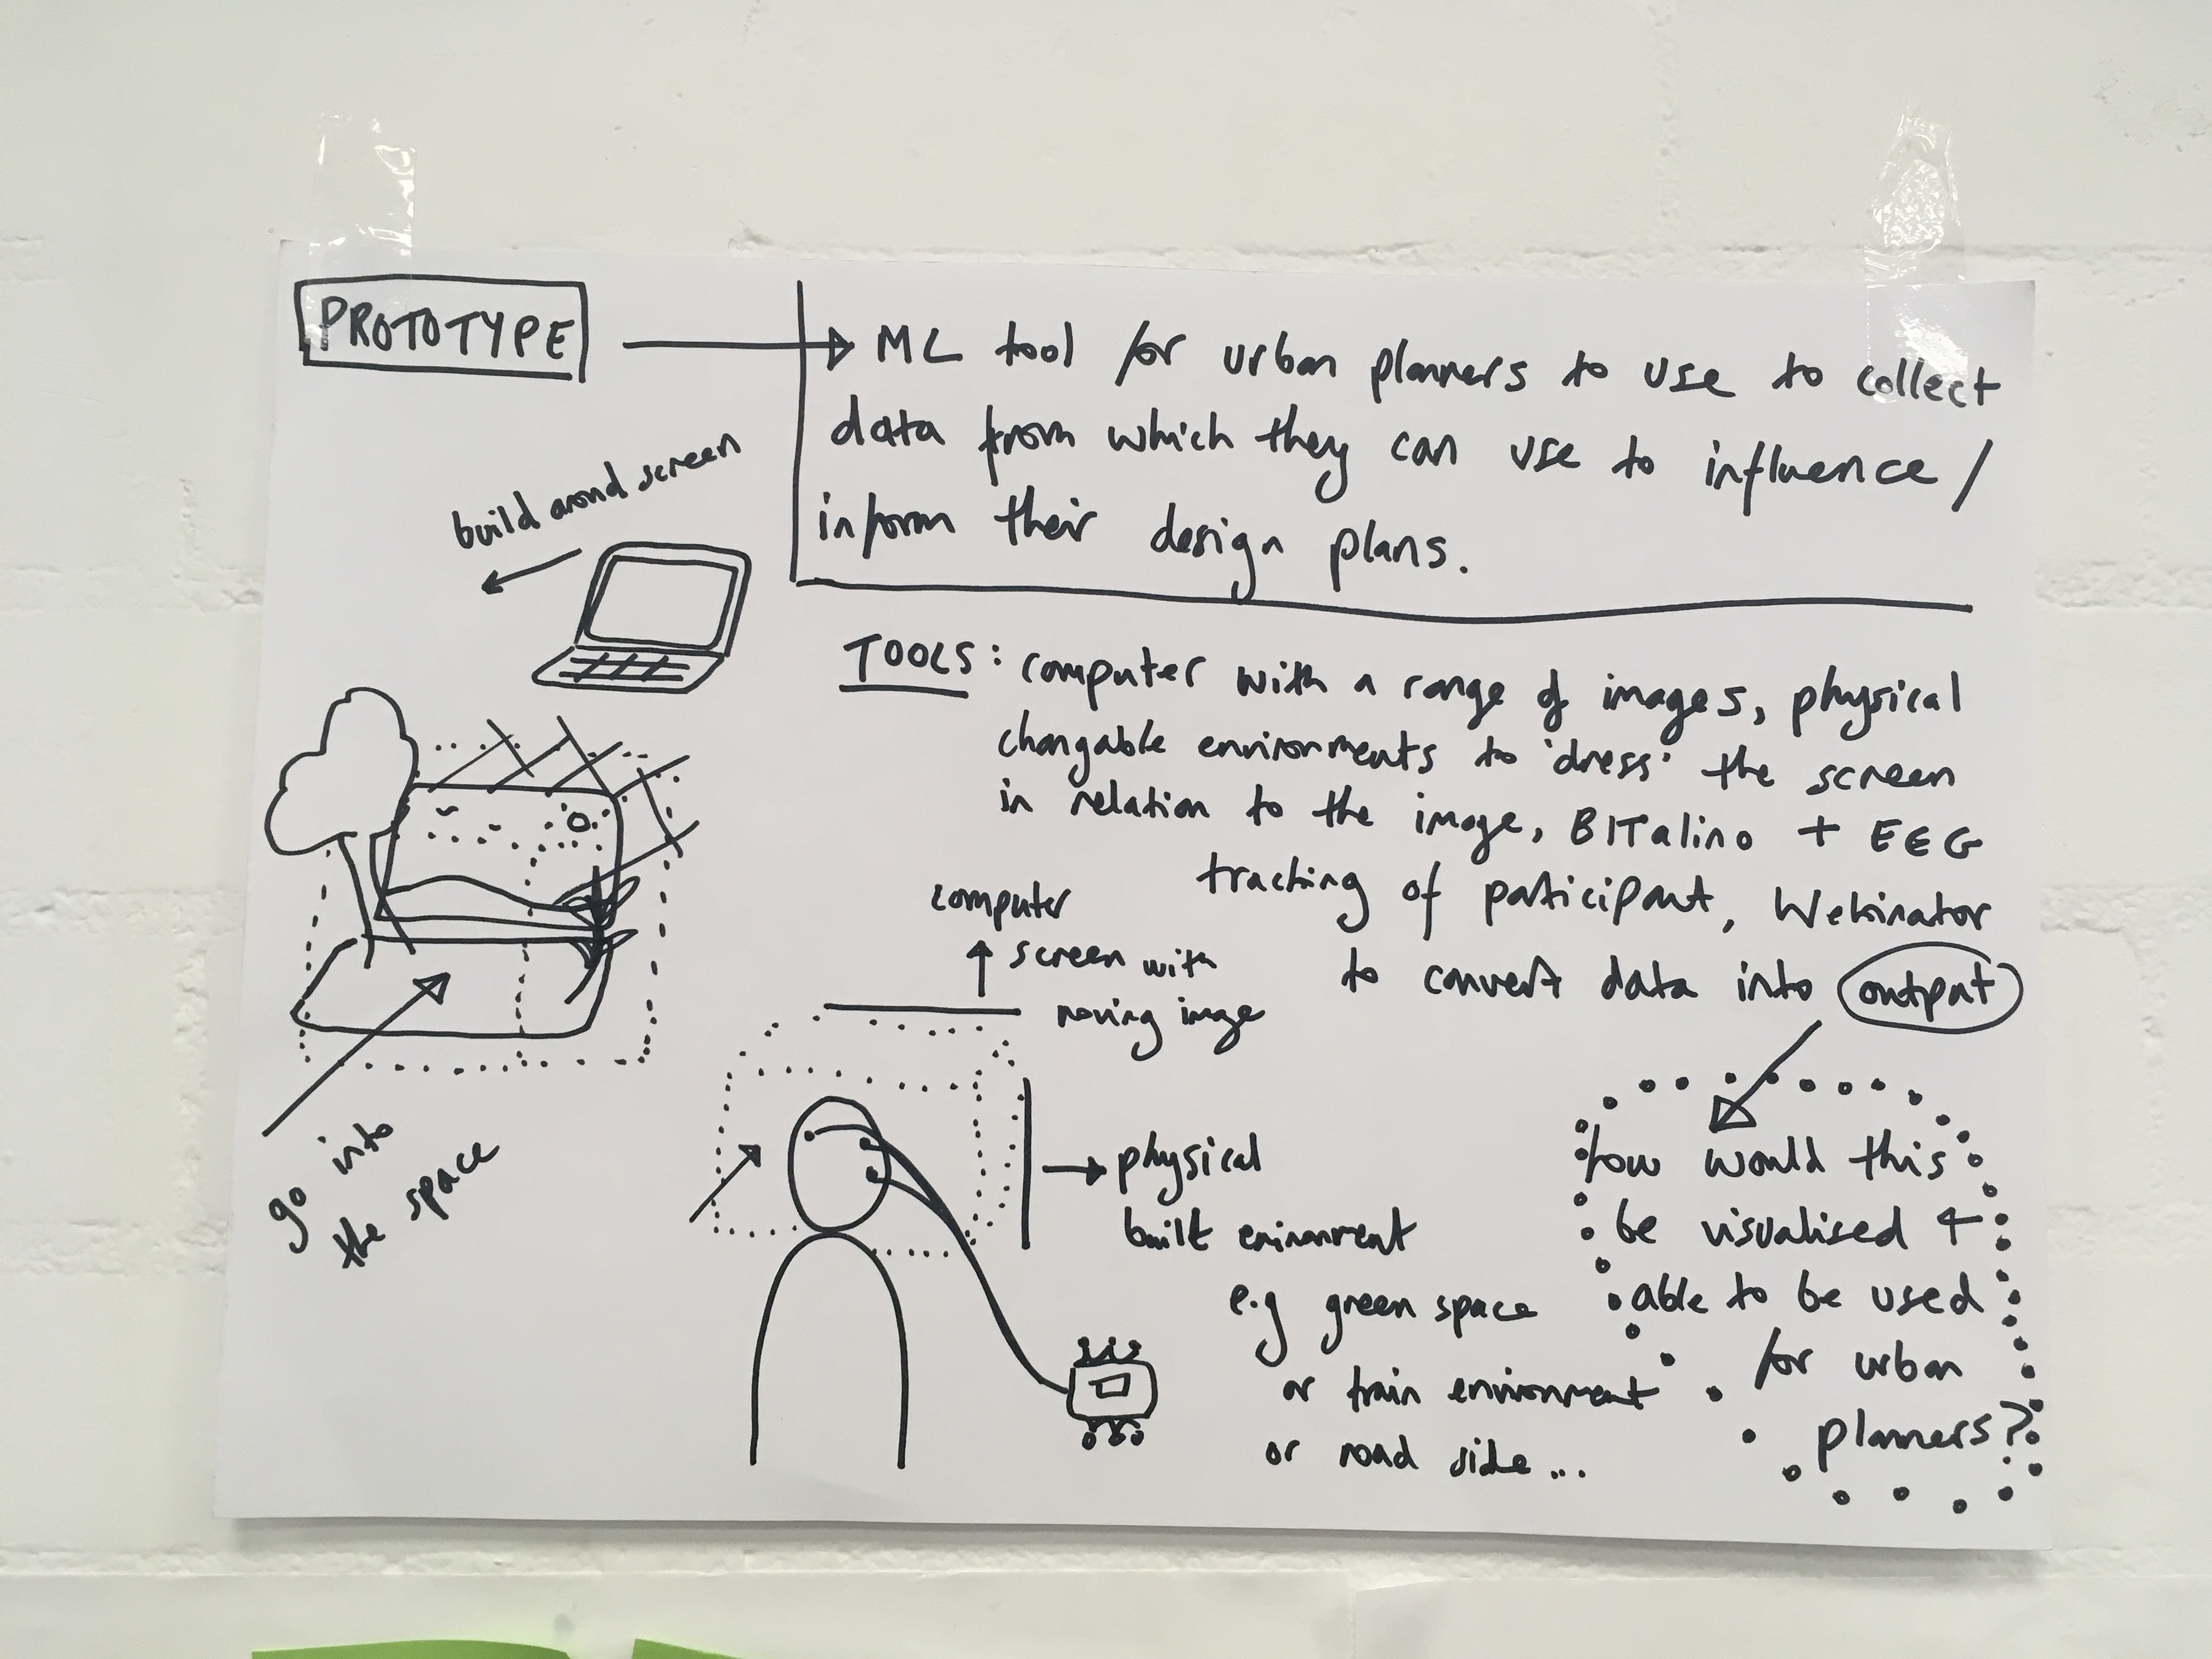 PROTOTYPE
ML tool for urban planners to use to collect
data from which they can use to influence /
inform their design plans.
build around screen
TOOLS: computer with a range of images, physical
changable environments to 'dress' the screen
in relation to the image, BITalino + EEG
tracking of participant, Wekinator
to convert data into output
computer
screen with
moving image
go into
the space
physical
built enironment
e.g green space
or train environment
or road side...
how would this
be visualised +
able to be used
for urban
planners?